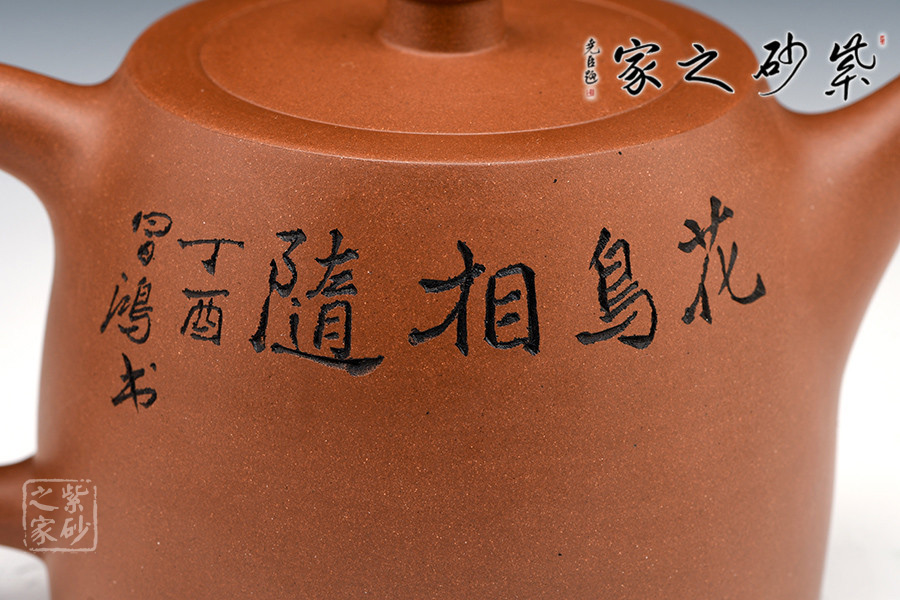 紫砂之家
花鳥相隨
丁酉
冒鴻书
紫砂之家